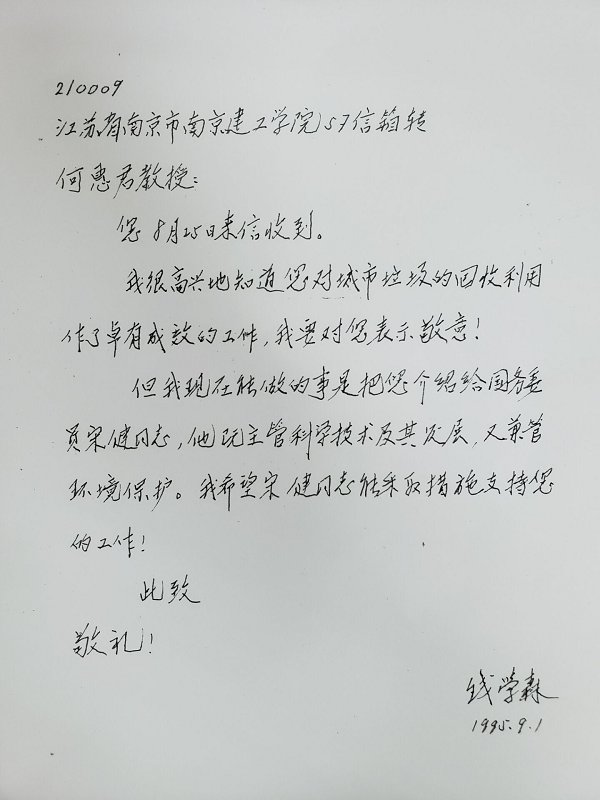 210009
江苏省南京市南京建工学院157信箱转
何惠君教授：
您8月25日来信收到。
我很高兴地知道您对城市垃圾的回收利用
作了卓有成效的工作，我要对您表示敬意！
但我现在能做的事是把您介绍给国务委
员宋健同志，他既主管科学技术及其发展，又兼管
环境保护。我希望宋健同志能采取措施支持您
的工作！
此致
敬礼！
钱学森
1995.9.1